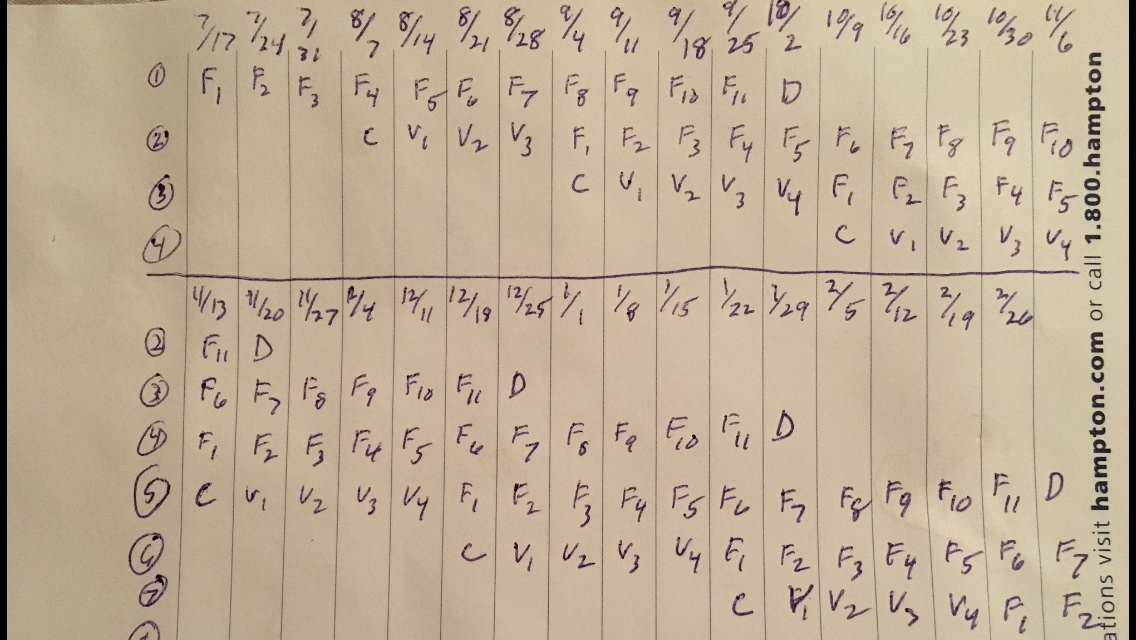 7/17 7/24 7/31 8/7 8/14 8/21 8/28 9/4 9/11 9/18 9/25 10/2 10/9 10/16 10/23 10/30 11/6
① F1 F2 F3 F4 F5 F6 F7 F8 F9 F10 F11 D
② C V1 V2 V3 F1 F2 F3 F4 F5 F6 F7 F8 F9 F10
③ C V1 V2 V3 V4 F1 F2 F3 F4 F5
④ C V1 V2 V3 V4
11/13 11/20 11/27 12/4 12/11 12/18 12/25 1/1 1/8 1/15 1/22 1/29 2/5 2/12 2/19 2/26
② F11 D
③ F6 F7 F8 F9 F10 F11 D
④ F1 F2 F3 F4 F5 F6 F7 F8 F9 F10 F11 D
⑤ C V1 V2 V3 V4 F1 F2 F3 F4 F5 F6 F7 F8 F9 F10 F11 D
⑥ C V1 V2 V3 V4 F1 F2 F3 F4 F5 F6 F7
⑦ C V1 V2 V3 V4 F1 F2
ations visit hampton.com or call 1.800.hampton